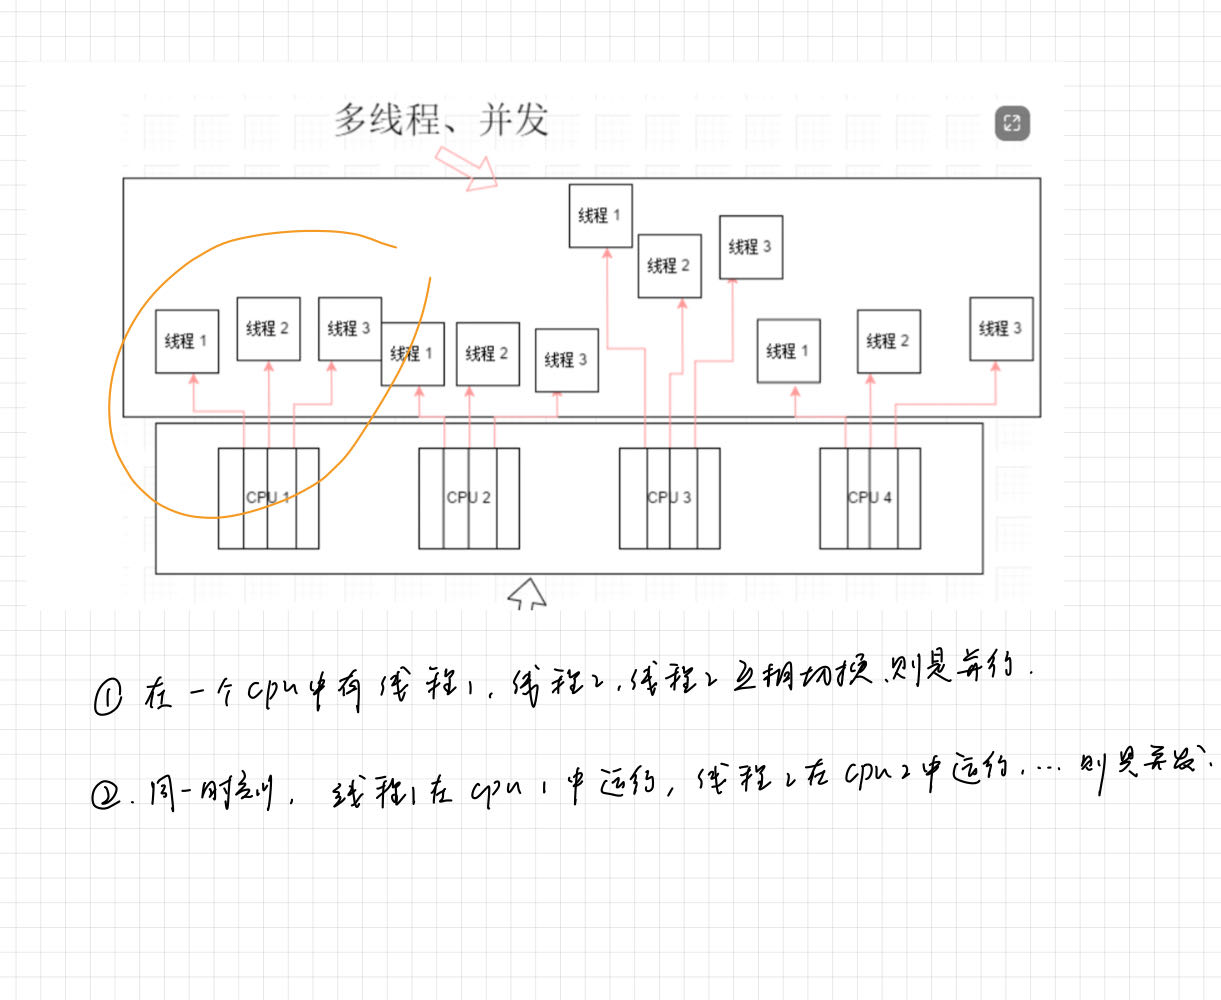 多线程、并发
线程 1
线程 2
线程 3
线程 1
线程 2
线程 3
线程 1
线程 2
线程 3
线程 1
线程 2
线程 3
CPU 1
CPU 2
CPU 3
CPU 4
① 在一个cpu中有线程1, 线程2, 线程2互相切换,则是并行.
②. 同一时刻, 线程1在cpu1中运行, 线程2在cpu2中运行, ... 则是并发.